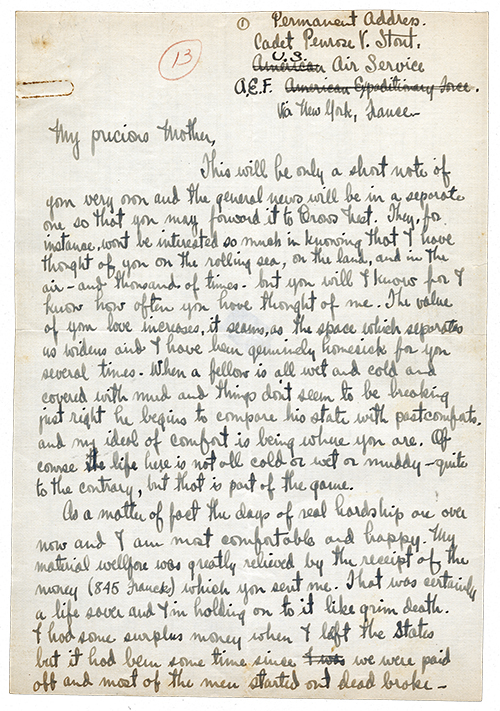 ① Permanent Address.
13
Cadet Penrose V. Stout,
U.S.
American Air Service
A.E.F. American Expeditionary Force.
Via New York, France—
My precious Mother,
This will be only a short note of
your very own and the general news will be in a separate
one so that you may forward it to Crows Nest. They, for
instance, wont be interested so much in knowing that I have
thought of you on the rolling sea, on the land, and in the
air - and thousand of times - but you will I know for I
know how often you have thought of me. The value
of you love increases, it seems, as the space which separates
us widens and I have been genuinely homesick for you
several times. When a fellow is all wet and cold and
covered with mud and things dont seem to be breaking
just right he begins to compare his state with past comforts.
and my ideal of comfort is being where you are. Of
course the life here is not all cold or wet or muddy - quite
to the contrary, but that is part of the game.
As a matter of fact the days of real hardship are over
now and I am most comfortable and happy. My
material wellfare was greatly relieved by the receipt of the
money (845 francs) which you sent me. That was certainly
a life saver and I'm holding on to it like grim death.
I had some surplus money when I left the States
but it had been some time since I was we were paid
off and most of the men started out dead broke -